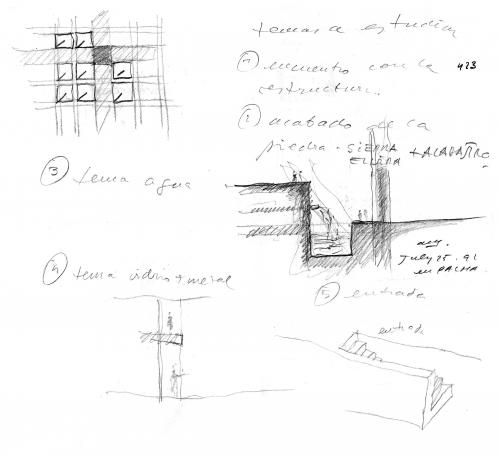 temas a estudiar
1) encuentro con la
estructura.
423
2) acabado de la
piedra. SIERRA + ALABASTRO.
ELVIRA
3 tema agua
July 25. 91
en PALMA.
4 tema vidrio + metal
5 entrada
entrada